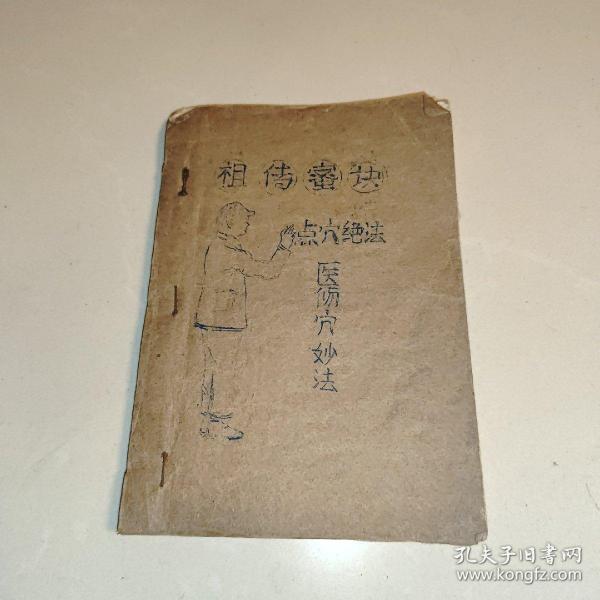 祖传蜜诀
点穴绝法
医伤穴妙法
孔夫子旧书网
www.kongfz.com